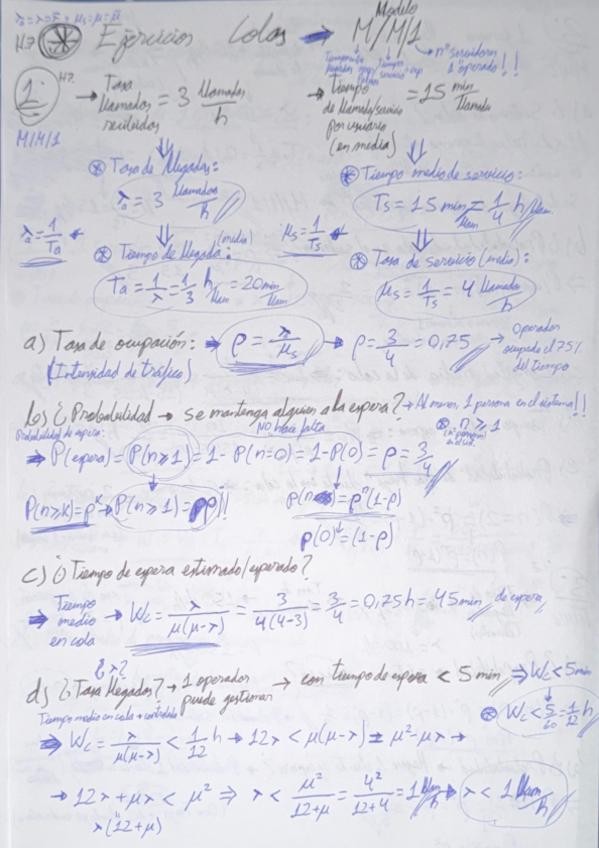 λa = λ = r̄ * μs = μ = μ̄
H.7 * Ejercicios Colas → Modelo M/M/1
nº servidores
1 operador !!
1. H7. → Tasa llamadas recibidas = 3 llamadas/h
→ Tiempo de llamada/servicio por usuario (en media) = 15 min/llamada
M/M/1
* Tasa de llegadas:
λa = 3 llamadas/h
* Tiempo medio de servicio:
Ts = 15 min/llam = 1/4 h/llam
λa = 1/Ta
μs = 1/Ts
* Tiempo de llegada (medio):
Ta = 1/λ = 1/3 h/llam = 20 min/llam
* Tasa de servicio (media):
μs = 1/Ts = 4 llamada/h
a) Tasa de ocupación: → ρ = λ/μs → ρ = 3/4 = 0,75 → Operador ocupado el 75% del tiempo
(Intensidad de tráfico)
b) ¿Probabilidad → se mantenga alguien a la espera? → Al menos, 1 persona en el sistema!!
* n ≥ 1
Probabilidad de espera:
NO hace falta
⇒ P(espera) = P(n≥1) = 1 - P(n=0) = 1 - P(0) = ρ = 3/4
P(n≥k) = ρ^k → P(n≥1) = ρ !!
p(n) = ρⁿ(1-ρ)
p(0) = (1-ρ)
c) ¿Tiempo de espera estimado/esperado?
⇒ Tiempo medio en cola → Wc = λ/μ(μ-λ) = 3/4(4-3) = 3/4 = 0,75h = 45min de espera
¿λ?
d) ¿Tasa llegadas? → 1 operador puede gestionar → con tiempo de espera < 5 min ⇒ Wc < 5min
Tiempo medio en cola
* Wc < 5/60 = 1/12 h
⇒ Wc = λ/μ(μ-λ) < 1/12 h → 12λ < μ(μ-λ) = μ² - μλ →
→ 12λ + μλ < μ² ⇒ λ < μ²/12+μ = 4²/12+4 = 1 llam/h → λ < 1 llam/h
λ(12+μ)